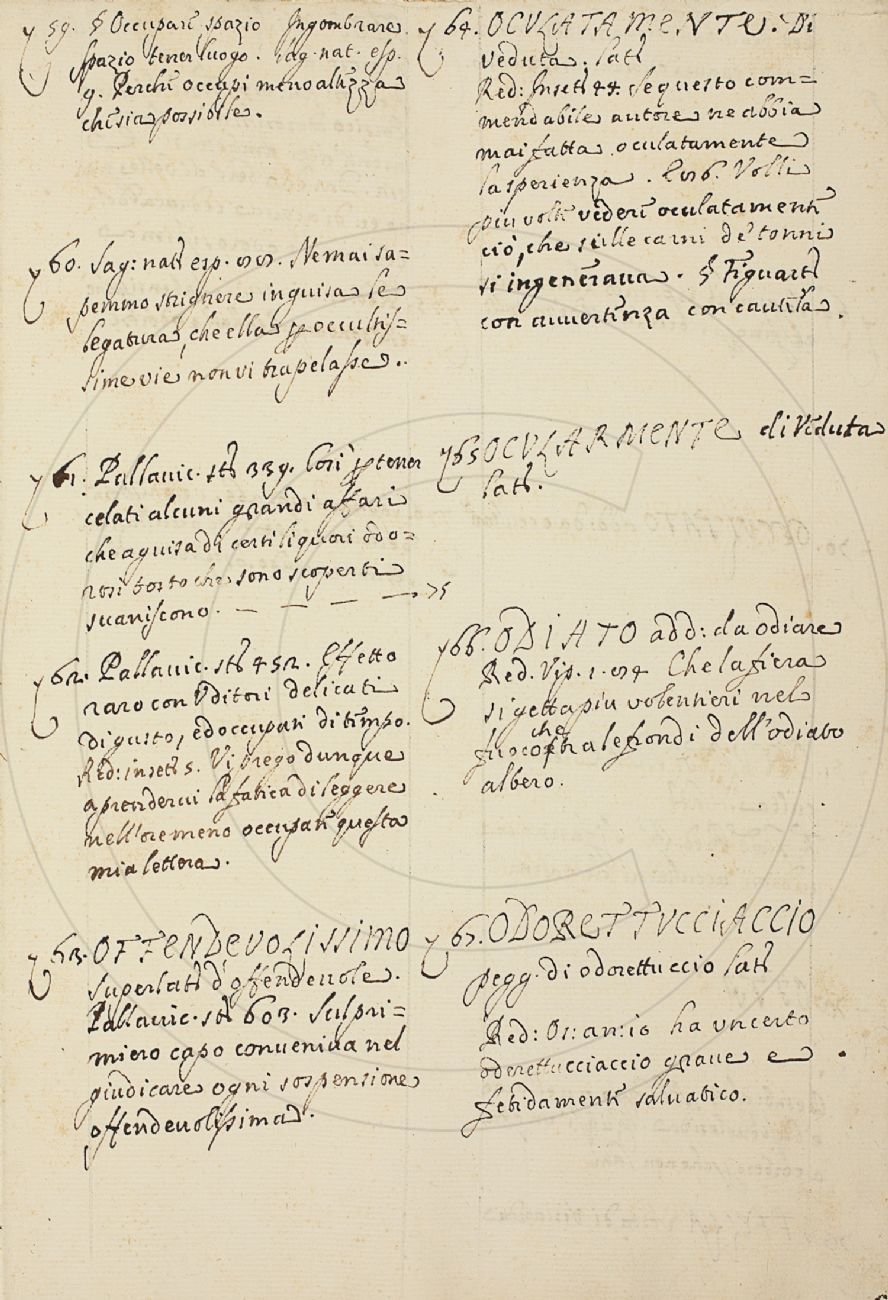 59. § Occupare spazio Ingombrare
spazio tener luogo. Sag. nat. esp.
9. Perche occupi meno altezza
che sia possibile.
60. Sag: nat: esp. Ne mai sa=
pemmo strignere in guisa le
legatura, che ella p occultis=
sime vie non vi trapelasse.
61. Pallauic. st: 339. Cosi p tener
celati alcuni grandi affari
che a guisa di certi liquori odo=
rosi tosto che sono scoperti
suaniscono. — — — — 75
62. Pallauic. st: 452. Effetto
raro con Vditori delicati
di gusto, ed occupati di tempo.
Red: inset: 5. Vi prego dunque
a prenderui la fatica di leggere
nell'ore meno occupate questa
mia lettera.
63. OFFENDEVOLISSIMO
Superlat: d'offendeuole.
Pallauic. st: 603. Sul pri=
miero capo conueniua nel
giudicare ogni sospensione
offendeuolissima.
64. OCVLATAMENTE. Di
veduta. Lat:
Red: Inset: 44. Se questo com=
mendabile autore ne abbia
mai fatta oculatamente
la sperienza. Volli
piu volte vedere oculatamente
ciò, che sulle carni de' tonni
si ingeneraua. § Figurat:
con auuertenza con cautela.
65 OCVLARMENTE di veduta
Lat:.
66. ODIATO add: da odiare
Red. Vip. 1. Che la fiera
si getta piu volentieri nel
fuoco che tra le frondi dell'odiato
albero.
67. ODORETTVCCIACCIO
pegg. di odorettuccio Lat:
Red: Os: an: 10 ha vn certo
odorettucciaccio graue e
fetidamente saluatico.